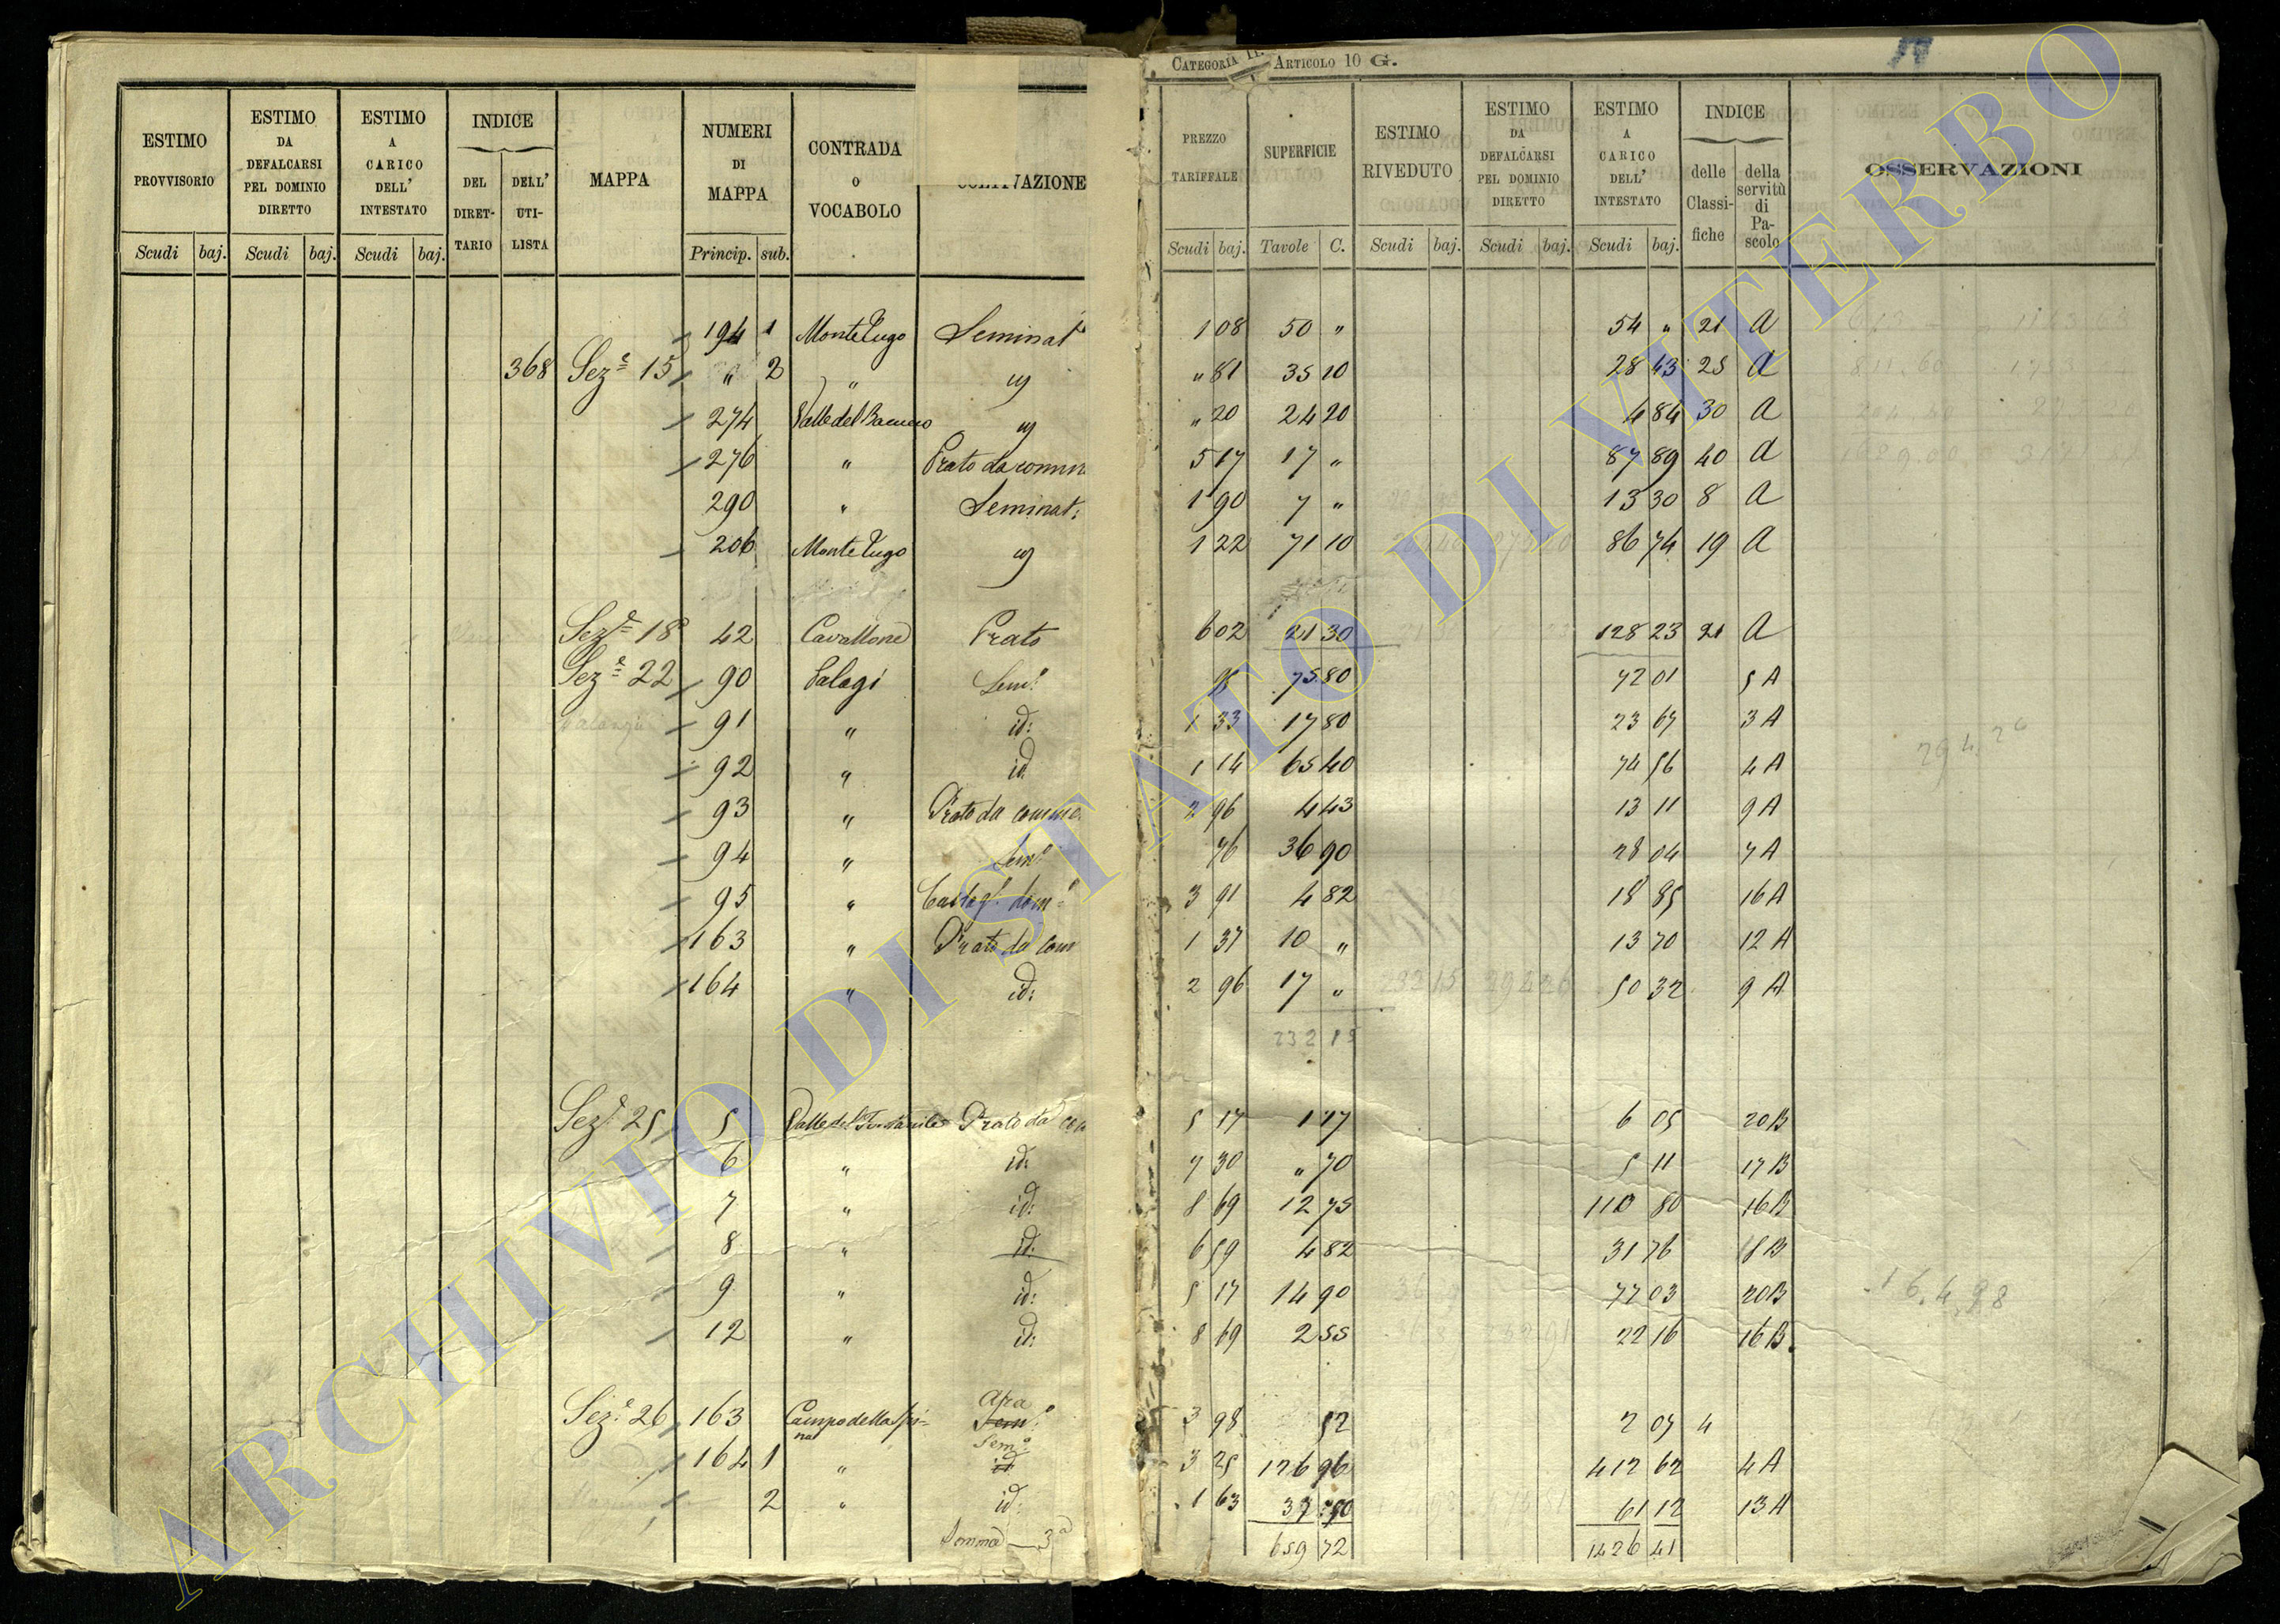 CATEGORIA II. ARTICOLO 10 G.
ESTIMO PROVVISORIO
ESTIMO DA DEFALCARSI PEL DOMINIO DIRETTO
ESTIMO A CARICO DELL' INTESTATO
INDICE
DEL DIRETTARIO
DELL' UTILISTA
MAPPA
NUMERI DI MAPPA
CONTRADA O VOCABOLO
COLTIVAZIONE
PREZZO TARIFFALE
SUPERFICIE
ESTIMO RIVEDUTO
ESTIMO DA DEFALCARSI PEL DOMINIO DIRETTO
ESTIMO A CARICO DELL' INTESTATO
INDICE
delle Classifiche
della servitù di Pascolo
OSSERVAZIONI
Scudi baj. Scudi baj. Scudi baj. Princip. sub. Scudi baj. Tavole C. Scudi baj. Scudi baj. Scudi baj.
194 1 Monte Pugo Seminat 1 08 50 " 54 " 21 A
368 Sez.e 15 " 2 " id " 81 35 10 28 43 25 A
274 Valle del " 20 24 20 4 84 30 A
276 " Prato da comun 5 17 17 " 87 89 40 A
290 " Seminat: 1 90 7 " 13 30 8 A
206 Monte Pugo 1 22 71 10 86 74 19 A
Sez.e 18 42 Cavallone Prato 6 02 21 30 128 23 21 A
Sez.e 22 90 Palagi Sem.o 95 75 80 72 01 5 A
91 " id: 1 33 17 80 23 67 3 A
92 " id 1 14 65 40 74 56 4 A
794.26
93 " Prato da comune 2 96 4 43 13 11 9 A
94 " Sem.o 76 36 90 28 04 7 A
95 " Castag. dom.o 3 91 4 82 18 85 16 A
163 " Prato da com 1 37 10 " 13 70 12 A
164 " id: 2 96 17 " 232 15 294 26 50 32 9 A
232 15
Sez.e 25 5 Valle del Fontanile Prato da com 5 17 1 17 6 05 20 B
6 " id: 7 30 " 70 5 11 17 B
7 " id: 8 69 12 75 110 80 16 B
8 " id. 6 59 4 82 31 76 18 B
9 " id: 5 17 14 90 77 03 20 B
16.4.98
12 " id: 8 69 2 55 22 16 16 B
Apa
Sez.e 26 163 Campo della Spina Sem.o 3 98 52 2 07 4
Sem.o
164 1 " id 3 25 126 96 412 62 4 A
2 " id: 1 63 37 50 61 12 13 A
Somma 3a 659 72 1426 41
ARCHIVIO DI STATO DI VITERBO